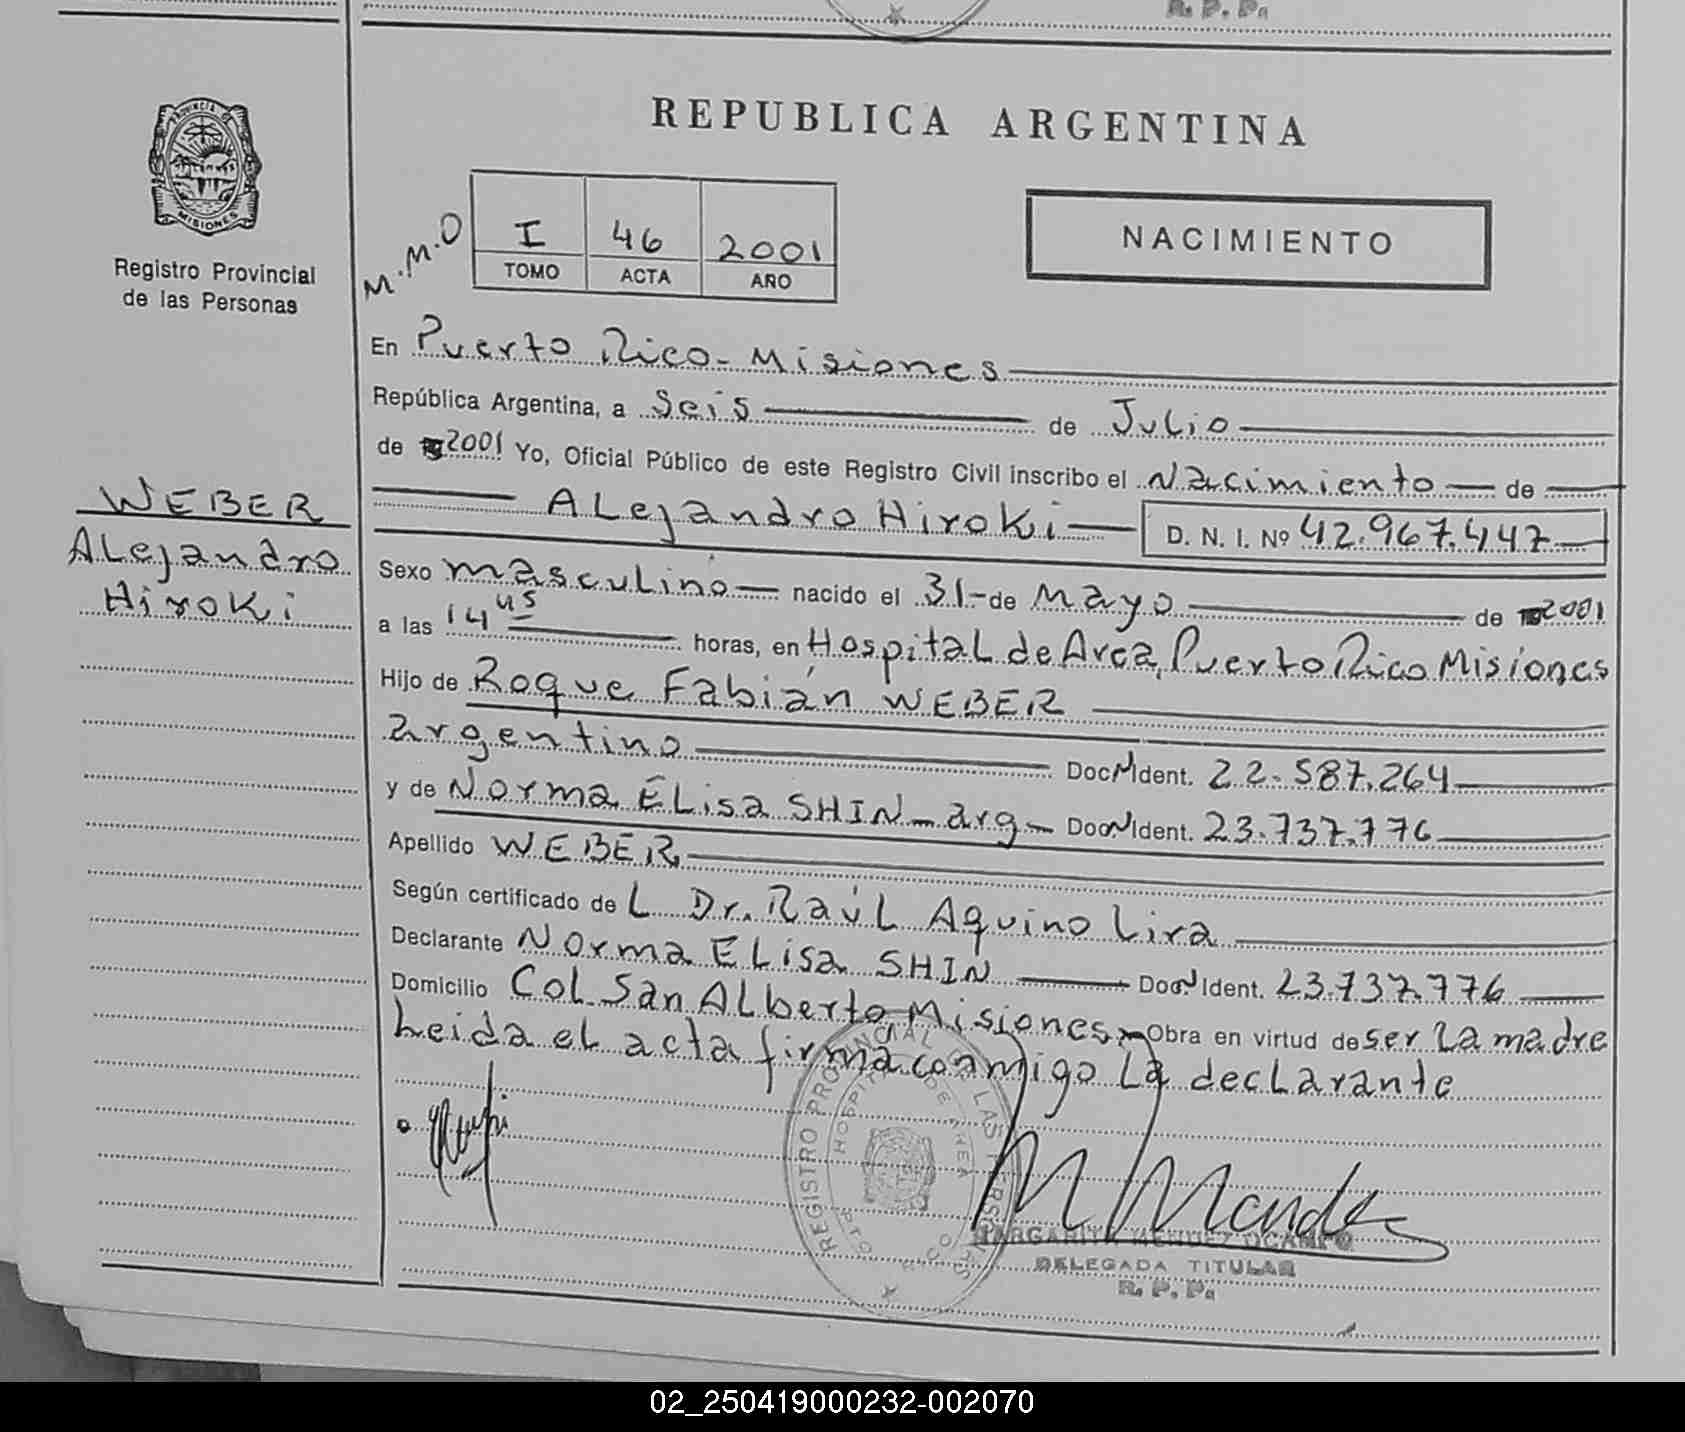 R. P. P.
REPUBLICA ARGENTINA
PROVINCIA DE
MISIONES
Registro Provincial
de las Personas
M.M.O
I 46 2001
TOMO ACTA AÑO
NACIMIENTO
En Puerto Rico - Misiones
República Argentina, a Seis de Julio
de 2001 Yo, Oficial Público de este Registro Civil inscribo el Nacimiento de
ALejandro Hiroki D. N. I. Nº 42.967.447
WEBER
ALejandro
Hiroki
Sexo masculino nacido el 31 - de Mayo de 2001
a las 14 45 horas, en HospitaL de Area, Puerto Rico Misiones
Hijo de Roque Fabián WEBER
argentino Doc. N Ident. 22.587.264
y de Norma ELisa SHIN - arg - Doc. N Ident. 23.737.776
Apellido WEBER
Según certificado de L Dr. RaúL Aquino Lira
Declarante Norma ELisa SHIN Doc. N Ident. 23.737.776
Domicilio CoL. San ALberto Misiones Obra en virtud de ser La madre
Leida eL acta firma conmigo La decLarante
REGISTRO PROVINCIAL DE LAS PERSONAS
HOSPITAL DE AREA
PTO RICO
M Mendez
MARGARITA MENDEZ OCAMPO
DELEGADA TITULAR
R. P. P.
02_250419000232-002070